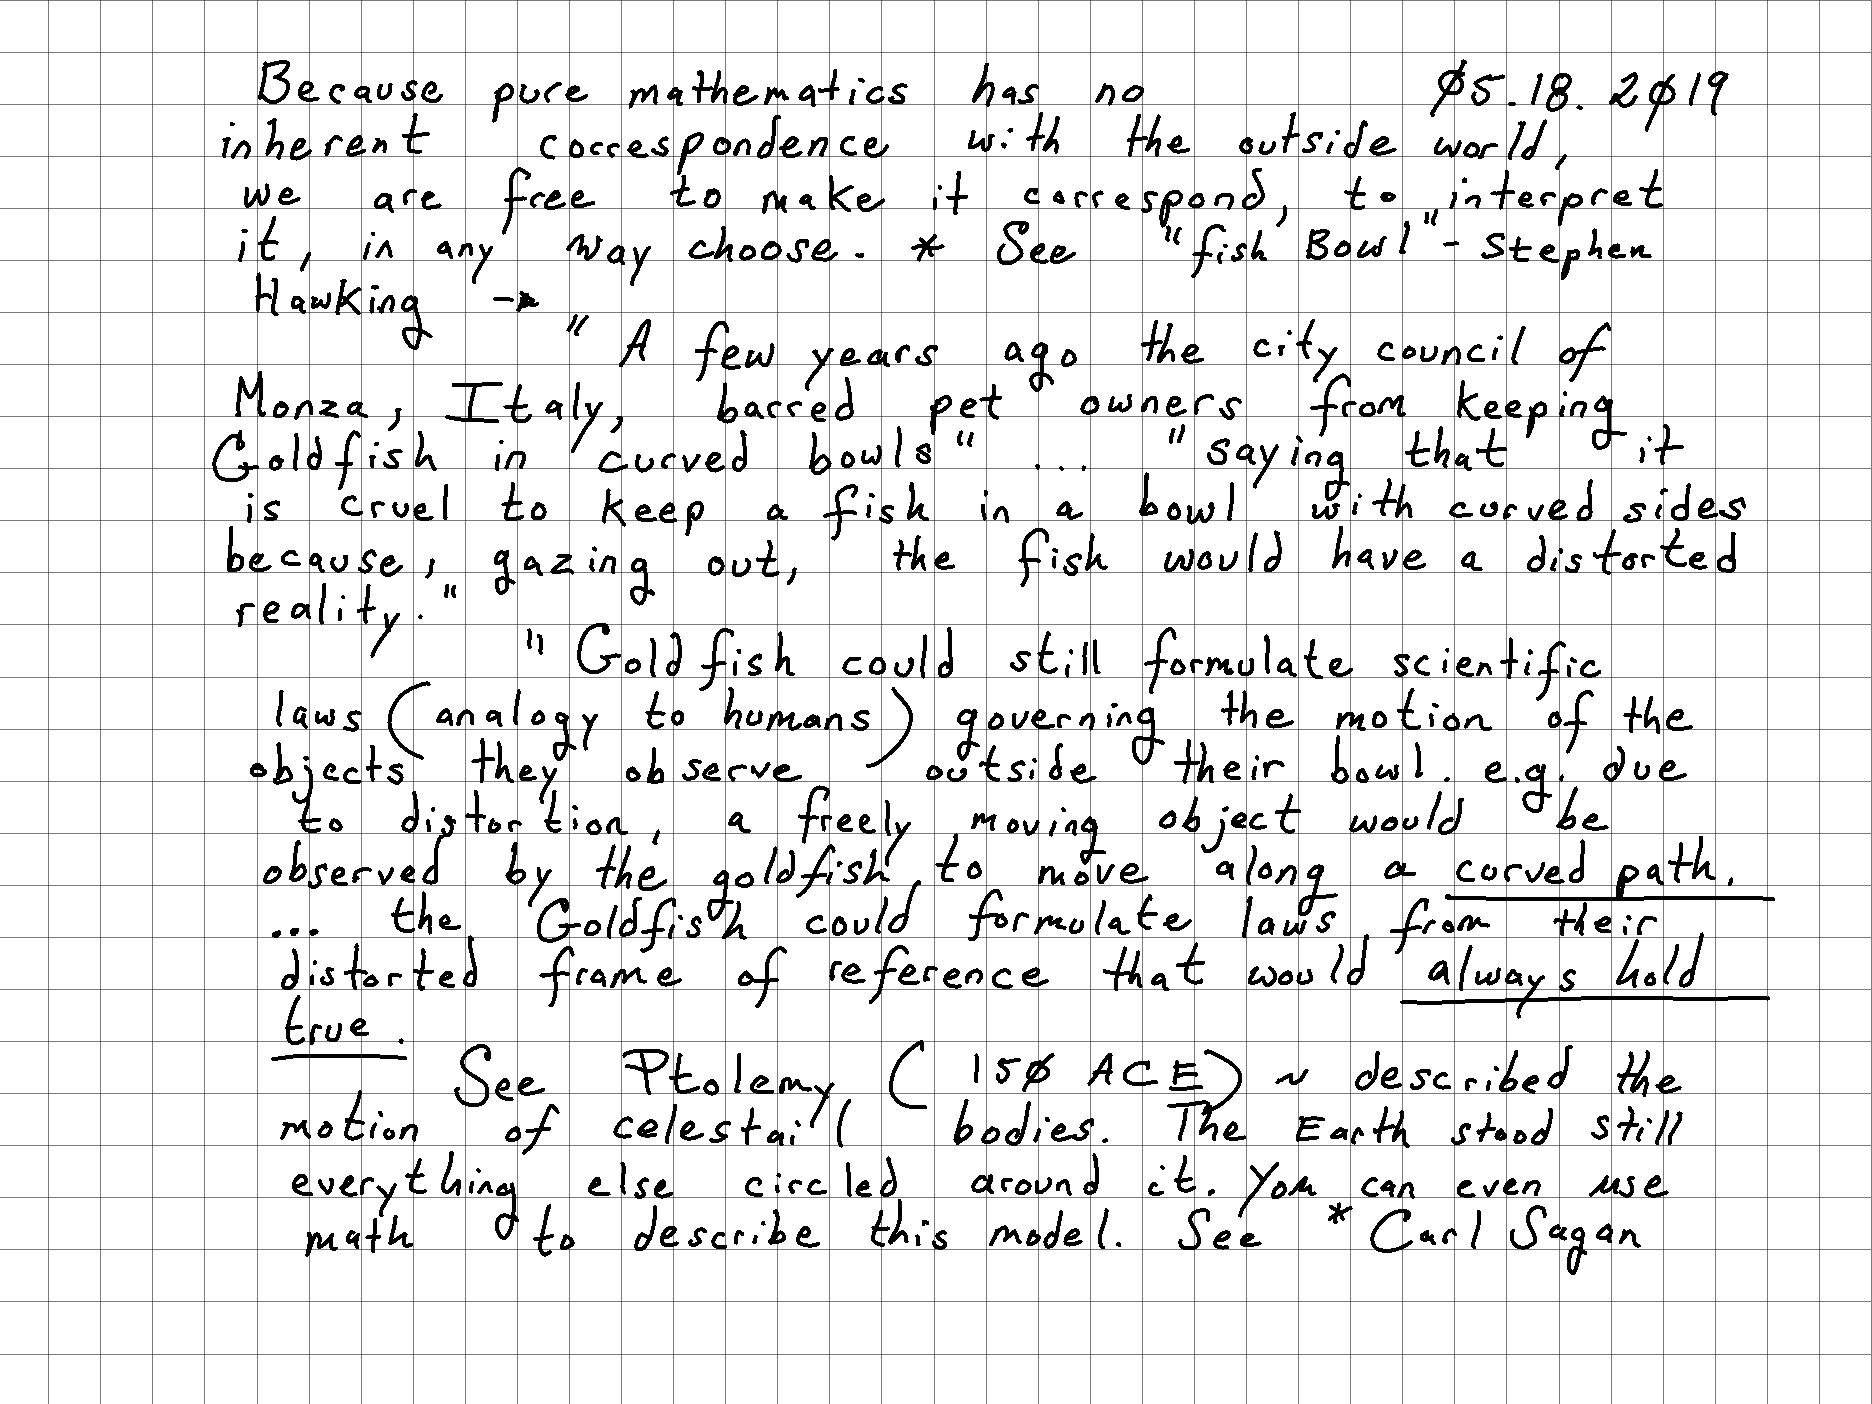 Because pure mathematics has no 05.18.2019
inherent correspondence with the outside world,
we are free to make it correspond, to interpret
it, in any way choose. * See "fish Bowl" - Stephen
Hawking →
"A few years ago the city council of
Monza, Italy, barred pet owners from keeping
Goldfish in curved bowls" ... "saying that it
is cruel to keep a fish in a bowl with curved sides
because, gazing out, the fish would have a distorted
reality."
"Goldfish could still formulate scientific
laws (analogy to humans) governing the motion of the
objects they observe outside their bowl. e.g. due
to distortion, a freely moving object would be
observed by the goldfish to move along a curved path.
... the Goldfish could formulate laws from their
distorted frame of reference that would always hold
true.
See Ptolemy (150 ACE) ~ described the
motion of celestail bodies. The Earth stood still
everything else circled around it. You can even use
math to describe this model. See * Carl Sagan